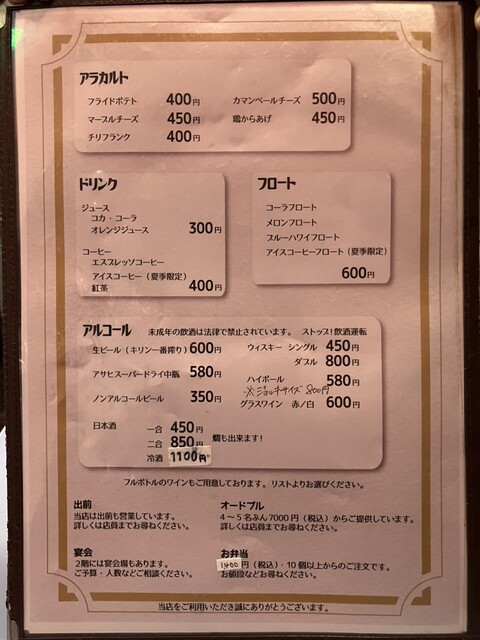 アラカルト
フライドポテト 400円 カマンベールチーズ 500円
マーブルチーズ 450円 鶏からあげ 450円
チリフランク 400円
ドリンク
ジュース
コカ・コーラ
オレンジジュース 300円
コーヒー
エスプレッソコーヒー
アイスコーヒー（夏季限定）
紅茶 400円
フロート
コーラフロート
メロンフロート
ブルーハワイフロート
アイスコーヒーフロート（夏季限定）
600円
アルコール 未成年の飲酒は法律で禁止されています。 ストップ！飲酒運転
生ビール（キリン一番搾り）600円
アサヒスーパードライ中瓶 580円
ノンアルコールビール 350円
ウィスキー シングル 450円
ダブル 800円
ハイボール 580円
※ジョッキサイズ 800円
グラスワイン 赤／白 600円
日本酒 一合 450円
二合 850円 燗も出来ます！
冷酒 1100円
フルボトルのワインもご用意しております。リストよりお選びください。
出前
当店は出前も営業しています。
詳しくは店員までお尋ねください。
オードブル
4～5名ぶん7000円（税込）からご提供しています。
詳しくは店員までお尋ねください。
宴会
2階には宴会場もあります。
ご予算・人数などご相談ください。
お弁当
1400円（税込）・10個以上からのご注文です。
お値段などお尋ねください。
当店をご利用いただき誠にありがとうございます。